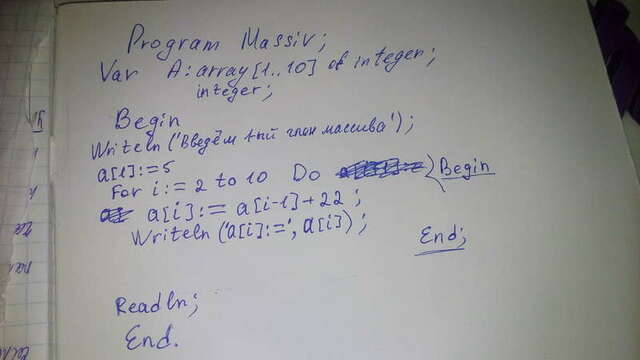 Program Massiv;
Var A: array[1..10] of integer;
integer;
Begin
Writeln('Введём 1ый член массива');
a[1]:=5
For i:= 2 to 10 Do Begin
a[i]:= a[i-1]+22;
Writeln('a[i]:=', a[i]);
End;
Readln;
End.